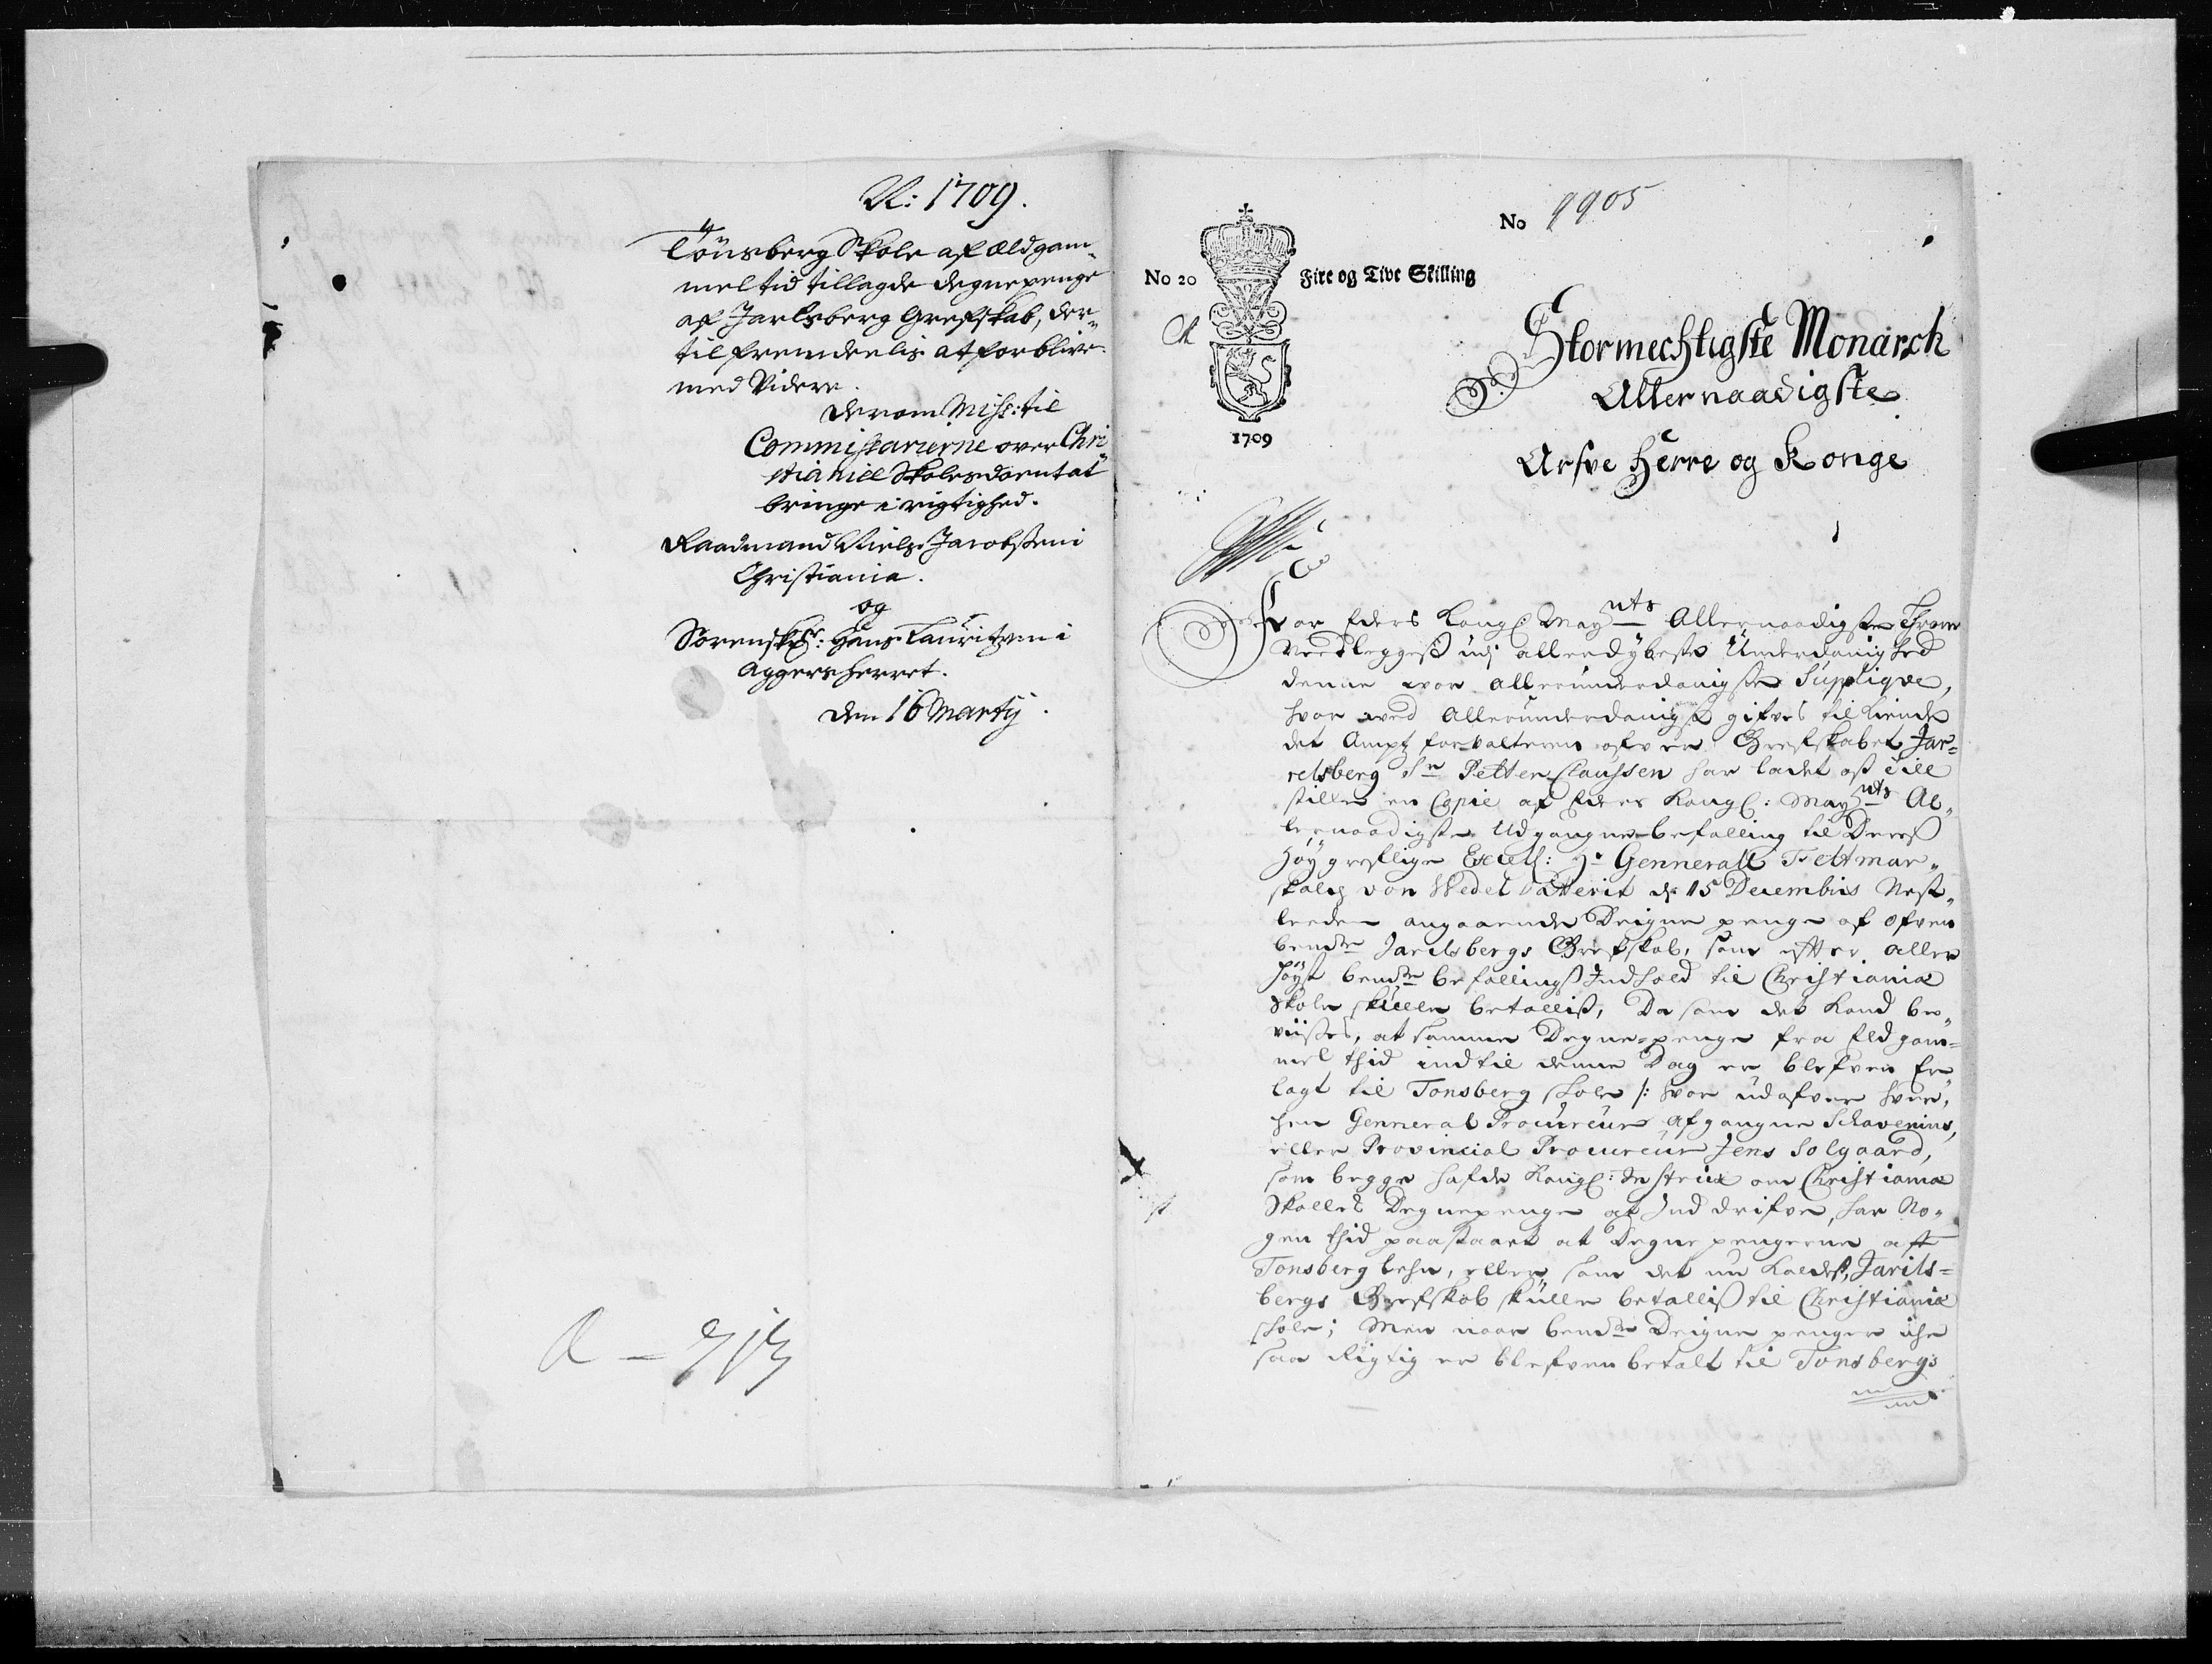 A: 1709.
Tönsberg Skole af Eldgam„
meltid tillagde degnepenge
af Jarlsberg Grefskab, der„
til fremdeelis at forblive
med Videre.
Derom Miss: til
Commissarierne over Chri„
stianiæ Skoles
bringe i rigtighed.
Raadmand Niels Jacobsen i
Christiania.
og
Sorenskr: Hans Lauritzen i
Aggersherret.
Den 16 Marty.
No 9905
No 20 Fire og Tive Skilling
1709
Stormechtigste Monarch
Allernaadigste
Arfve Herre og Konge
For Eders Kongl: Mayts Allernaadigste Throne
Nedleggeß udj allerdybeste Underdanighed
denne vor allerunderdanigste Suppliqve,
hvor ved Allerunderdanigst gifves tilkiende
det Ampt forvalteren ofver Grefskabet Jar=
relsberg Sr Petter Claussen har ladet oß till
stille en Copie af Eders Kongl: Mayts Al„
lernaadigste Udgangne befalling til Deres
Høygreflige Excell: Hr Gennerall Feltmar„
skalch von Wedel Datterit d: 15 Decembris Nest„
leeden angaaende Deigne penge af ofven
bemte Jarelsbergs Grefskab, som efter aller
høyst bemte befallings Indhold til Christiania
Skole skulle betalliß, Da som det Kand be„
viises, at samme Degne-penge fra Eldgam=
mel thid indtil denne Dag er blefven Er„
lagt til Tonsberg skole /: hvor udofver hver„
cken General Procureur afgangne Schavenius,
eller Provincial Procureur Jens Solgaard,
som begge hafde Kongl: Instrux om Christiania
Skolles Degnepenge at Inddrifve, har No„
gen thid paastaaet at Degne pengerne aff
Tonsberg lehn, eller som det nu kaldeß, Jarils=
bergs Grefskab skulle betalliß til Christiania
skole; Men naar bemte Deigne penger iche
saa Rigtig er blefven betalt til Tonsbergs